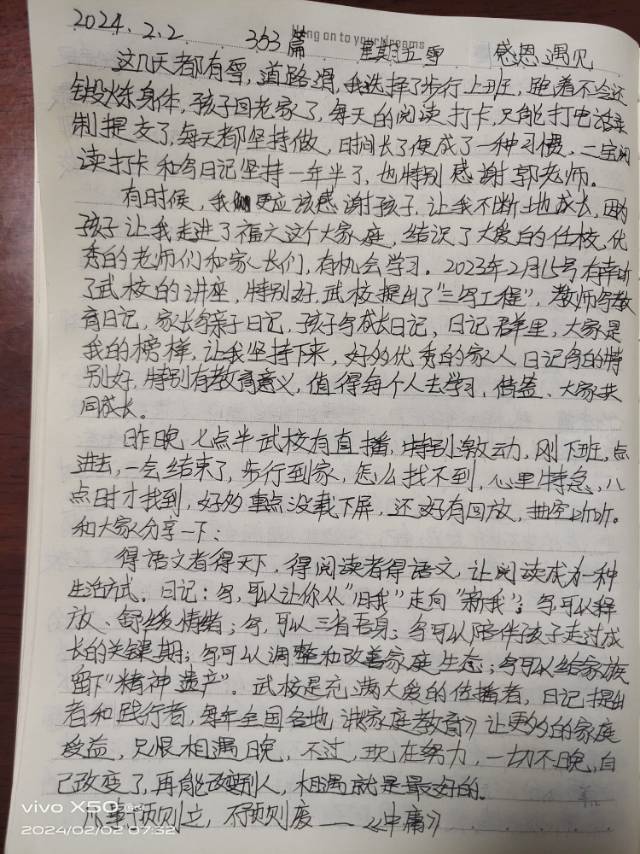 2024.2.2. 363篇 ing on to your dreams 星期五雪 感恩遇见
这几天都有雪，道路滑，我选择了步行上班，跑着不会还
锻炼身体，孩子回老家了，每天的阅读打卡，只能打电话录
制提交了，每天都坚持做，时间长了便成了一种习惯，二宝阅
读打卡和写日记坚持一年半了，也特别感谢郭老师。
有时候，我更应该感谢孩子，让我不断地成长，因为
孩子让我走进了福六这个大家庭，结识了大爱的任校，优
秀的老师们和家长们，有机会学习。2023年2月15号有幸听
了武校的讲座，特别好，武校提出了“三写工程”，教师写教
育日记，家长写亲子日记，孩子写成长日记，日记群里，大家是
我的榜样，让我坚持下来，好的优秀的家人日记写的特
别好，特别有教育意义，值得每个人去学习，借鉴、大家共
同成长。
昨晚七点半武校有直播，特别激动，刚下班，点
进去，一会结束了，步行到家，怎么找不到，心里特急，八
点时才找到，好多重点没截下屏，还好有回放，抽空听听。
和大家分享一下：
得语文者得天下，得阅读者得语文，让阅读成为一种
生活方式。日记：写，可以让你从“旧我”走向“新我”；写可以释
放、舒缓情绪；写，可以三省吾身；写可以陪伴孩子走过成
长的关键期；写可以调整和改善家庭生态；写可以给家族
留下“精神遗产”。武校是充满大爱的传播者，日记提出
者和践行者，每年全国各地讲《家庭教育》让更多的家庭
受益，只恨相遇晚，不过，现在努力，一切不晚，自
己改变了，再能改变别人，相遇就是最好的。
凡事预则立，不预则废——《中庸》
vivo X50
2024/02/02 07:32